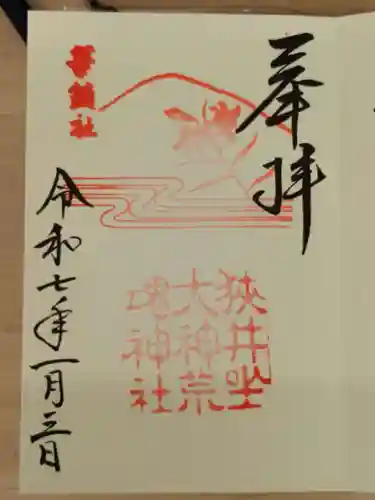 奉拝
華鎮社
狭井坐
大神荒
魂神社
令和七年一月三日